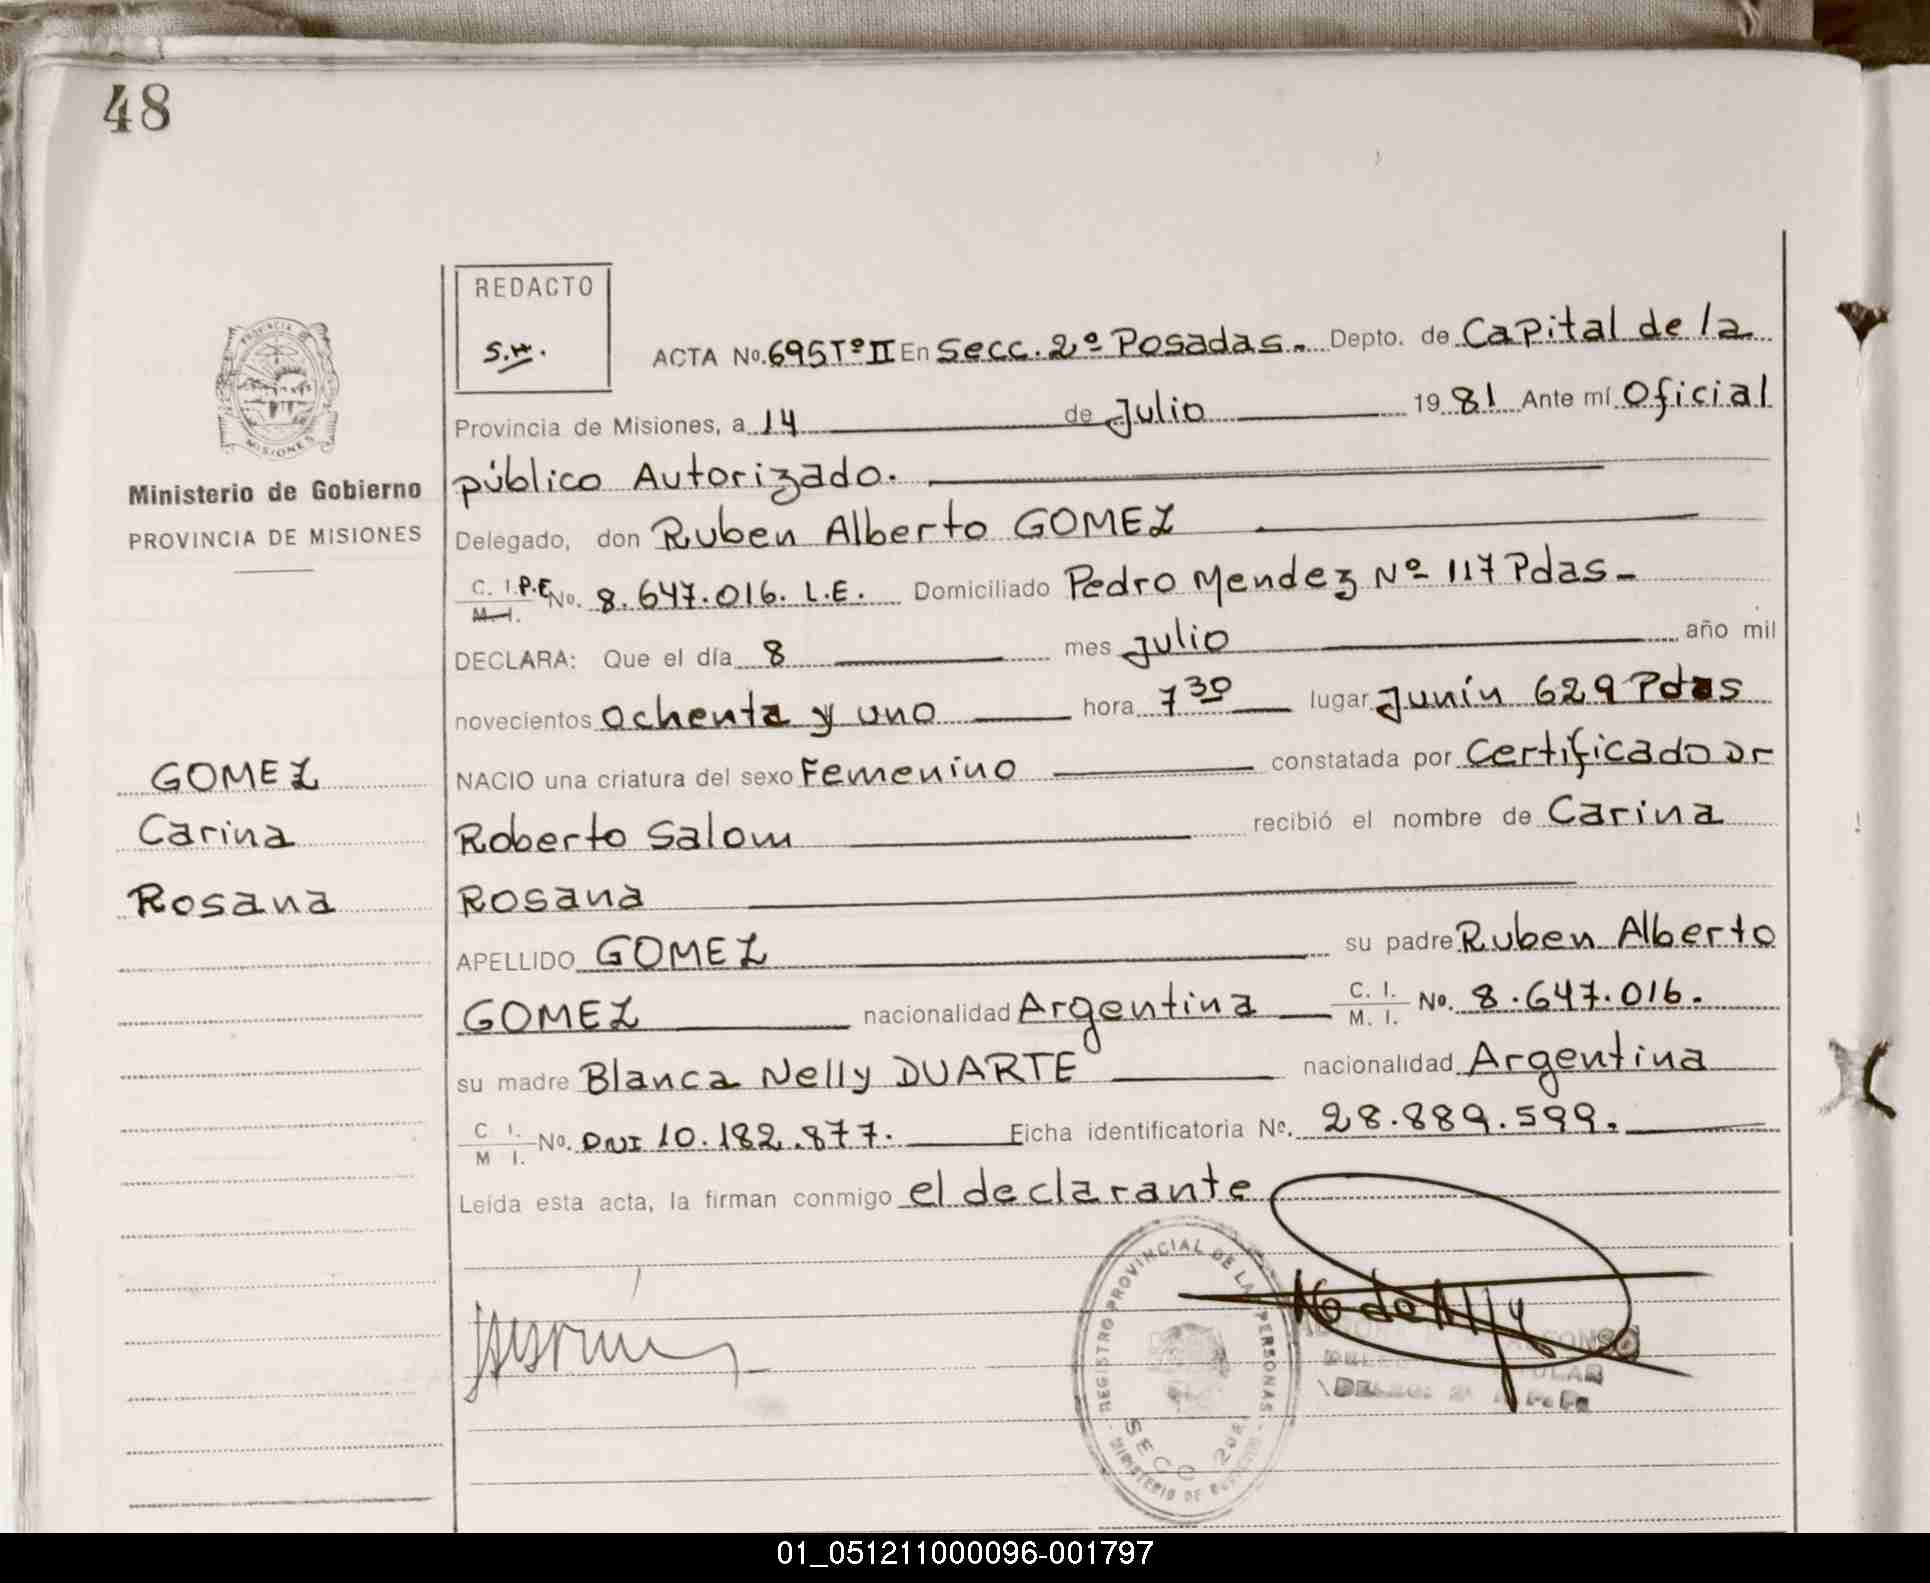 48
REDACTO
S.H.
ACTA No. 695 Tº II En Secc. 2º Posadas.- Depto. de Capital de la
Provincia de Misiones, a 14 de Julio 19 81 Ante mí Oficial
público Autorizado.
Delegado, don Ruben Alberto GOMEZ
C. I. P.E No. 8.647.016. L.E. Domiciliado Pedro Mendez Nº 117 Pdas-
M. I.
DECLARA: Que el día 8 mes Julio año mil
novecientos ochenta y uno hora 7 30 lugar Junín 629 Pdas
NACIO una criatura del sexo Femenino constatada por Certificado Dr
Roberto Salom recibió el nombre de Carina
Rosana
APELLIDO GOMEZ su padre Ruben Alberto
GOMEZ nacionalidad Argentina C. I. No. 8.647.016.
M. I.
su madre Blanca Nelly DUARTE nacionalidad Argentina
C I. No. DNI 10.182.877. Ficha identificatoria No. 28.889.599.
M I.
Leída esta acta, la firman conmigo el declarante
PROVINCIA DE
MISIONES
Ministerio de Gobierno
PROVINCIA DE MISIONES
GOMEZ
Carina
Rosana
REGISTRO PROVINCIAL DE LAS PERSONAS
SECC 2da
MINISTERIO DE GOBIERNO
01_051211000096-001797